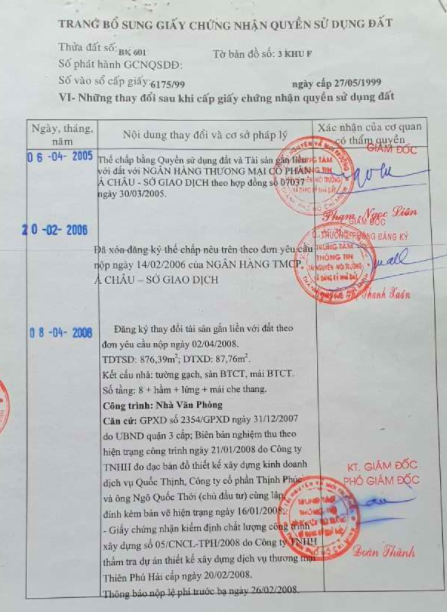 TRANG BỔ SUNG GIẤY CHỨNG NHẬN QUYỀN SỬ DỤNG ĐẤT
Thửa đất số: BK 601 Tờ bản đồ số: 3 KHU F
Số phát hành GCNQSDĐ:
Số vào sổ cấp giấy 6175/99 ngày cấp 27/05/1999
VI- Những thay đổi sau khi cấp giấy chứng nhận quyền sử dụng đất
Ngày, tháng, năm
Nội dung thay đổi và cơ sở pháp lý
Xác nhận của cơ quan có thẩm quyền
06-04-2005
Thế chấp bằng Quyền sử dụng đất và Tài sản gắn liền
với đất với NGÂN HÀNG THƯƠNG MẠI CỔ PHẦN
Á CHÂU - SỞ GIAO DỊCH theo hợp đồng số 07037
ngày 30/03/2005.
GIÁM ĐỐC
Phạm Ngọc Liên
20-02-2006
Đã xóa đăng ký thế chấp nêu trên theo đơn yêu cầu
nộp ngày 14/02/2006 của NGÂN HÀNG TMCP
Á CHÂU – SỞ GIAO DỊCH
GIÁM ĐỐC
ĐĂNG KÝ
TRUNG TÂM
THÔNG TIN
Thanh Xuân
08-04-2008
Đăng ký thay đổi tài sản gắn liền với đất theo
đơn yêu cầu nộp ngày 02/04/2008.
TDTSD: 876,39m²; DTXD: 87,76m².
Kết cấu nhà: tường gạch, sàn BTCT, mái BTCT.
Số tầng: 8 + hầm + lửng + mái che thang.
Công trình: Nhà Văn Phòng
Căn cứ: GPXD số 2354/GPXD ngày 31/12/2007
do UBND quận 3 cấp; Biên bản nghiệm thu theo
hiện trạng công trình ngày 21/01/2008 do Công ty
TNHH đo đạc bản đồ thiết kế xây dựng kinh doanh
dịch vụ Quốc Thịnh, Công ty cổ phần Thịnh Phúc
và ông Ngô Quốc Thới (chủ đầu tư) cùng lập,
đính kèm bản vẽ hiện trạng ngày 16/01/2008.
- Giấy chứng nhận kiểm định chất lượng công trình
xây dựng số 05/CNCL-TPH/2008 do Công ty TNHH
thẩm tra dự án thiết kế xây dựng dịch vụ thương mại
Thiên Phú Hải cấp ngày 20/02/2008.
Thông báo nộp lệ phí trước bạ ngày 26/02/2008.
KT. GIÁM ĐỐC
PHÓ GIÁM ĐỐC
Đoàn Thành